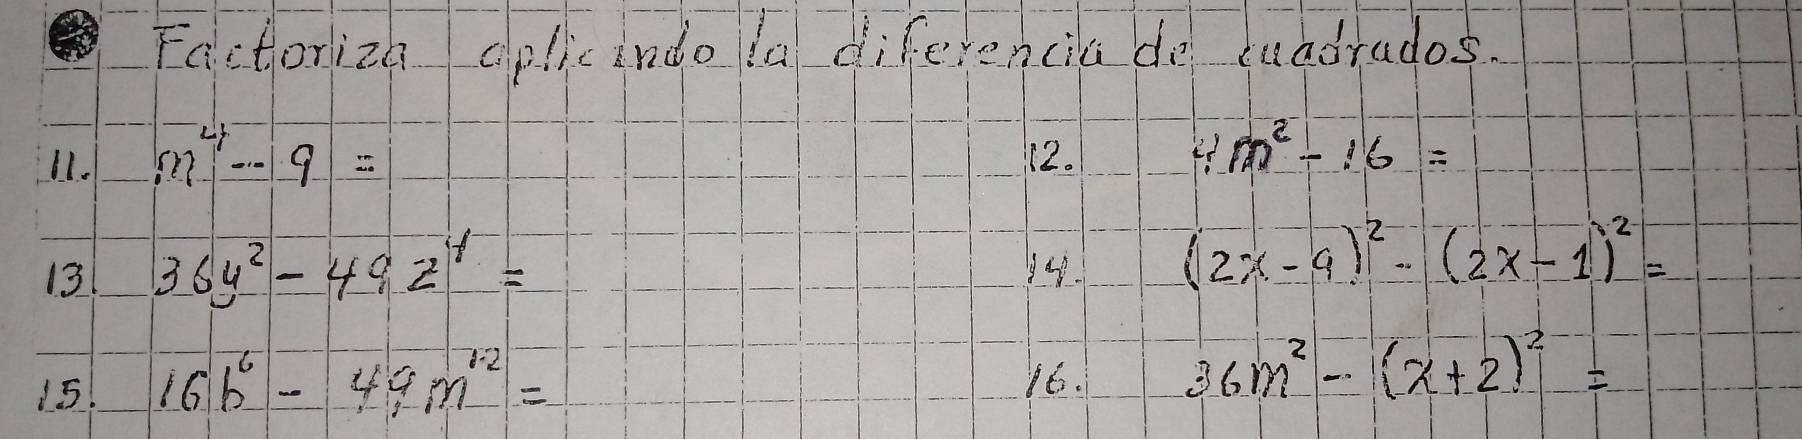 Factoriza aplicando la diferencia de cuadrados.
11. m⁴ - 9 =
12. 4m² - 16 =
13. 36y² - 49z⁴ =
14. (2x - 9)² - (2x - 1)² =
15. 16b⁶ - 49m¹² =
16. 36m² - (x + 2)² =